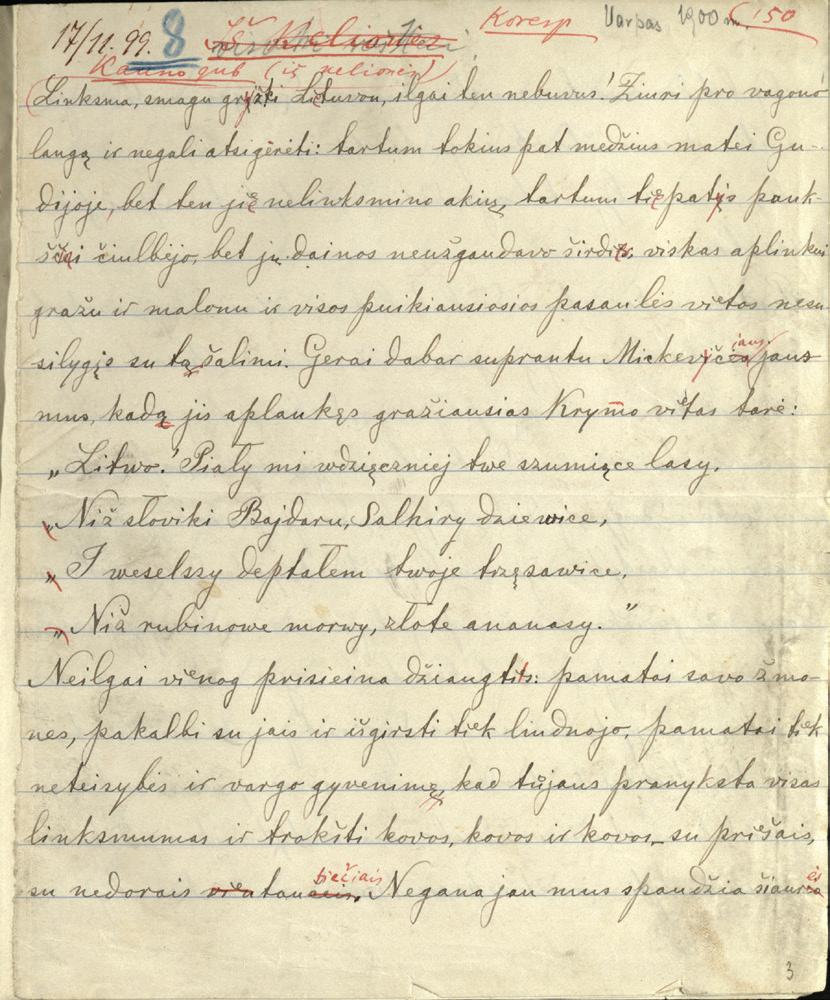 17/11. 99. 8 Koresp Varpas 1900 m. 150
Kauno gub (iš kelionės)
Linksma, smagu gryžti Lietuvon, ilgai ten nebuvus! Žiuri pro vagono
langą ir negali atsigėrėti: tartum tokius pat medžius matei Gu-
dijoje, bet ten jiė nelinksmino akių, tartum tiėpatįs pauk-
ščiai čiulbėjo, bet jų dainos neužgaudavo širdies, viskas aplinkui
gražu ir malonu ir visos puikiausiosios pasaulės viėtos nesu
silygįs su tą šalimi. Gerai dabar suprantu Mickevičiaus jaus
mus, kadą jis aplankęs gražiausias Krymo viėtas tarė:
„Litwo! Piały mi wdzięczniej twe szumiące lasy,
„Niž słoviki Bajdaru, Salhiry dziewice,
„I weselszy deptałem twoje trzęsawice,
„Niž rubinowe morwy, złote ananasy.”
Neilgai viėnog prisieina džiaugtis: pamatai savo žmo-
nes, pakalbi su jais ir išgirsti tiek liudnojo, pamatai tiek
neteisybės ir vargo gyvenimę, kad tůjaus pranyksta visas
linksmumas ir trokšti kovos, kovos ir kovos su priėšais,
su nedorais viėntaučiais. Negana jau mus spaudžia šiaurės
3